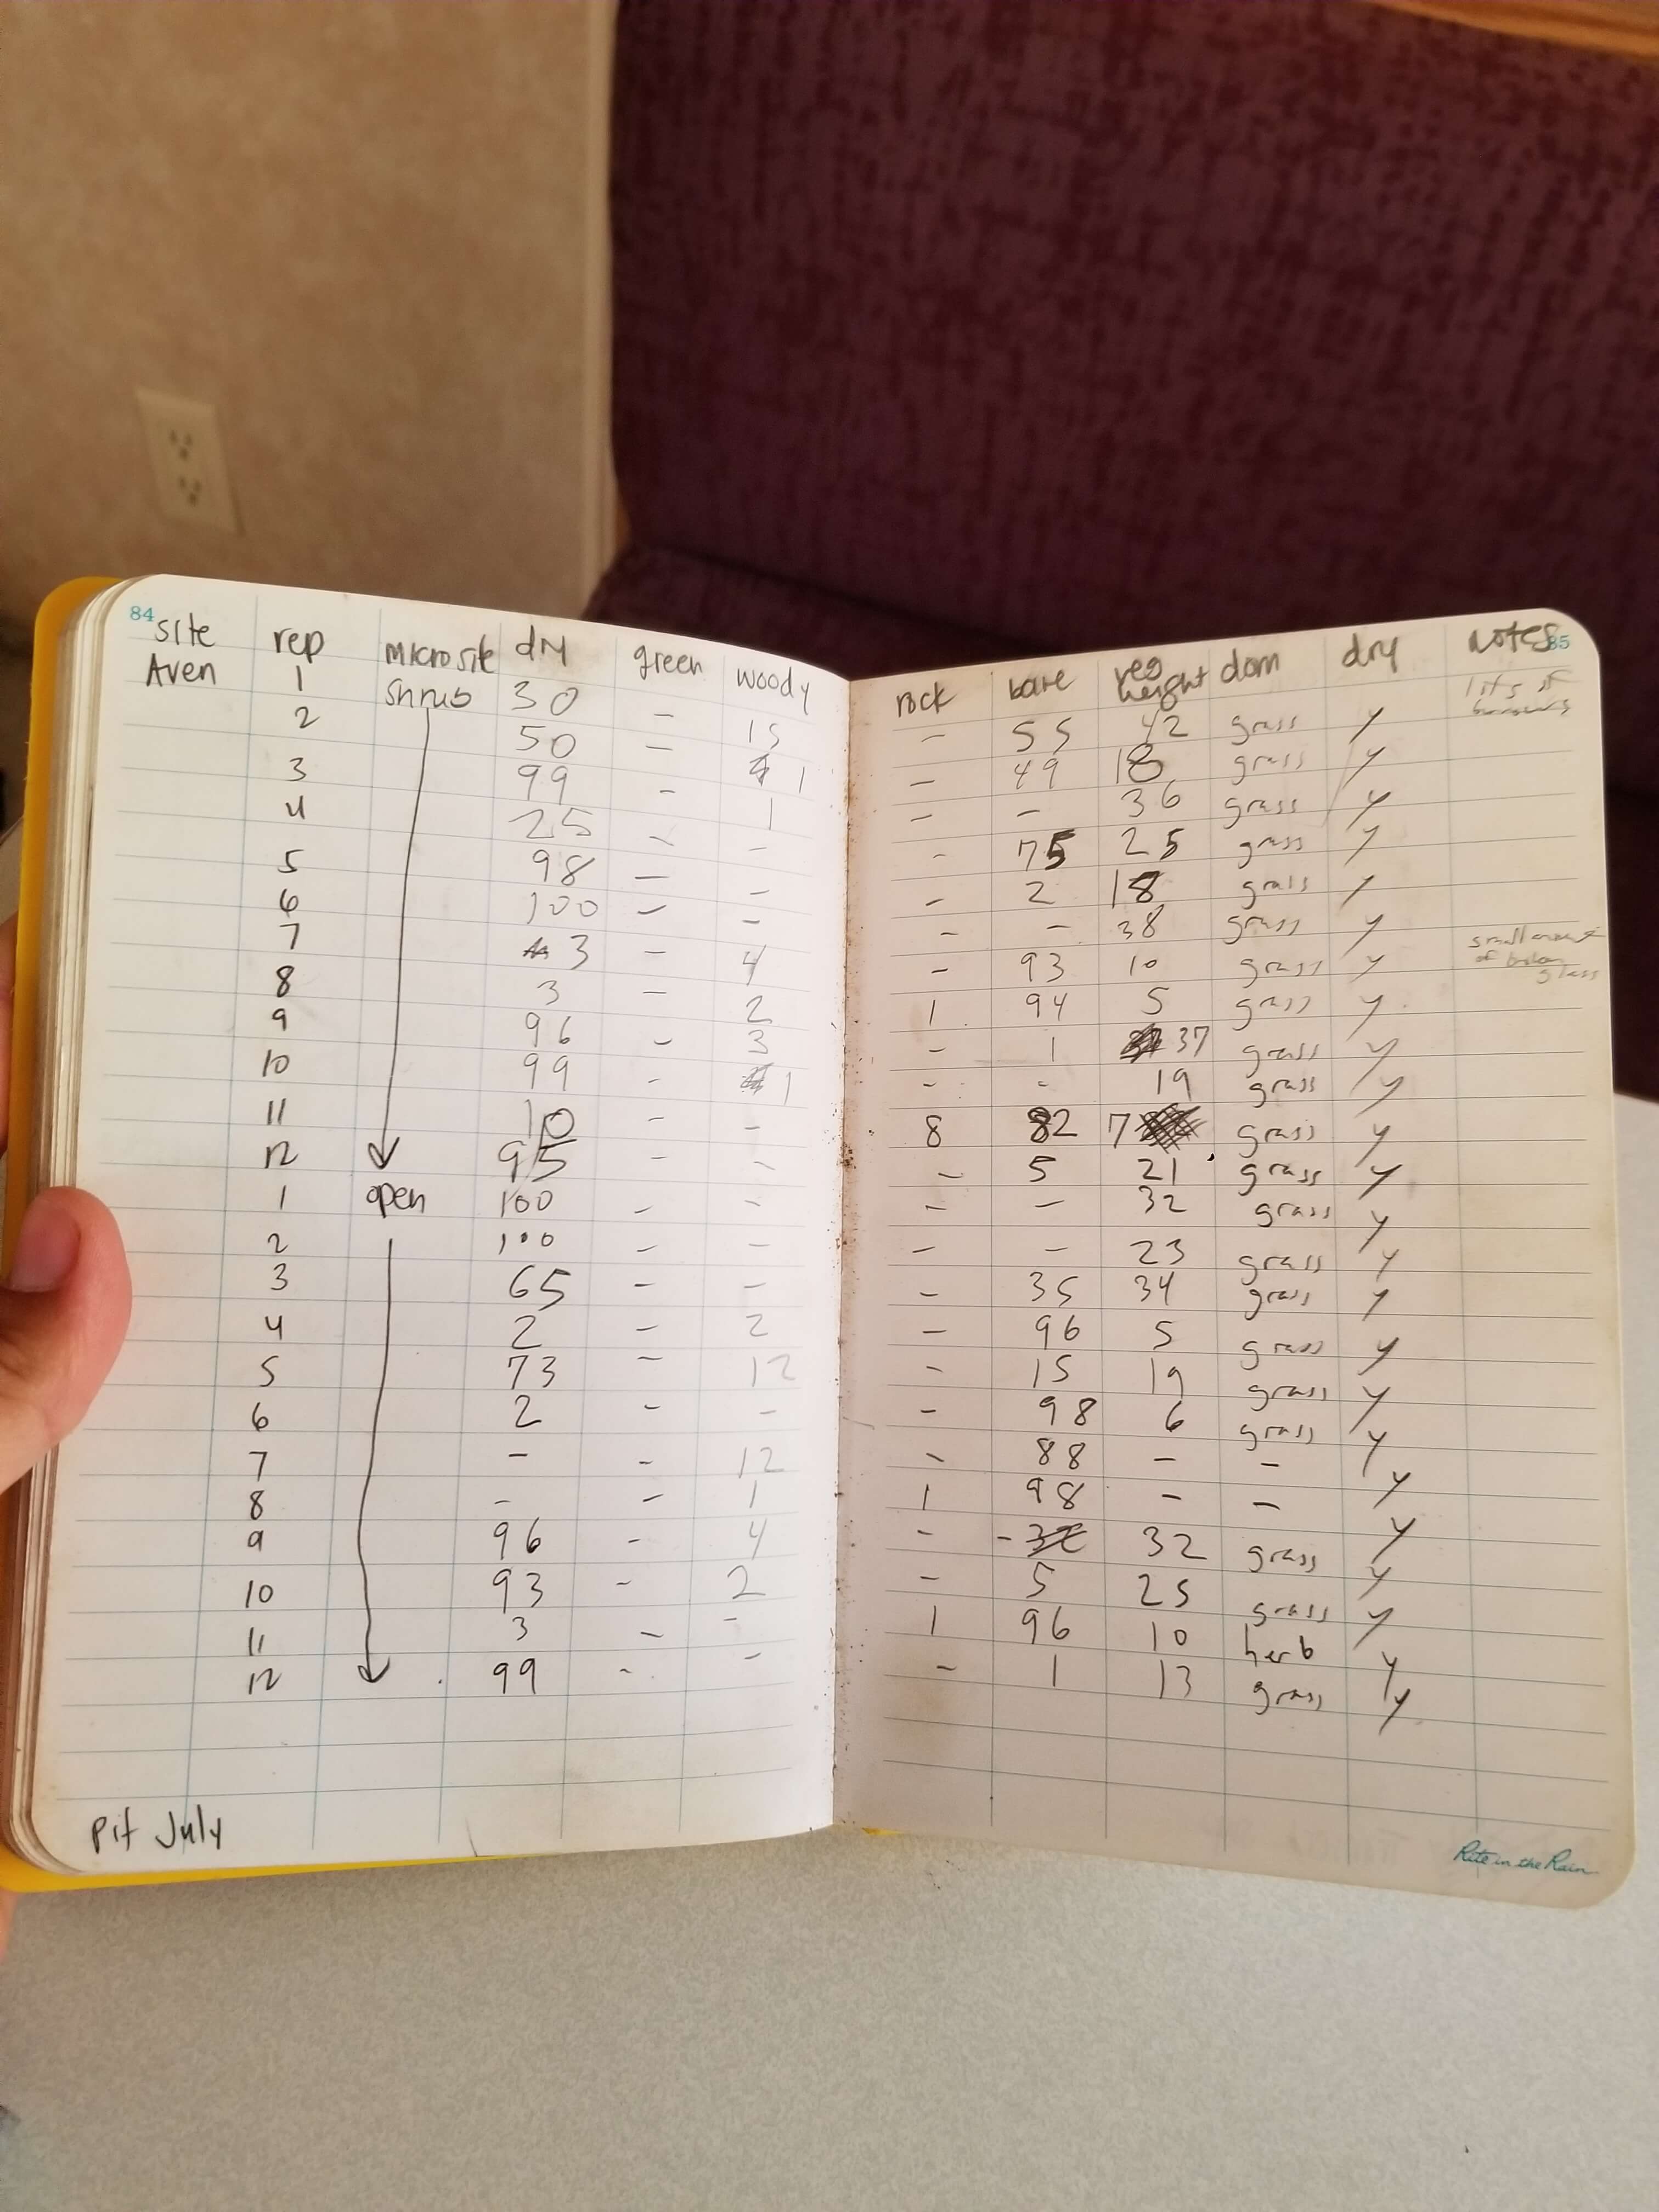 84
site rep microsite dry green woody
Aven 1 shrub 30 – 15
2 50 – 1
3 99 – 1
4 25 – –
5 98 – –
6 100 – –
7 3 – 4
8 3 – 2
9 96 – 3
10 99 – 1
11 10 – –
12 95 – –
1 open 100 – –
2 100 – –
3 65 – –
4 2 – 2
5 73 – 12
6 2 – –
7 – – 12
8 – – 1
9 96 – 4
10 93 – 2
11 3 – –
12 99 – –
Pit July
85
rock bare veg height dom dry notes
– 55 42 grass y lots of burrows
– 49 18 grass y
– – 36 grass y
– 75 25 grass y
– 2 18 grass y
– – 38 grass y
– 93 10 grass y small amount of broken glass
1 94 5 grass y
– 1 37 grass y
– – 19 grass y
8 82 7 grass y
– 5 21 grass y
– – 32 grass y
– – 23 grass y
– 35 34 grass y
– 96 5 grass y
– 15 19 grass y
– 98 6 grass y
– 88 – – y
1 98 – – y
– – 32 grass y
– 5 25 grass y
1 96 10 herb y
– 1 13 grass y
Rite in the Rain